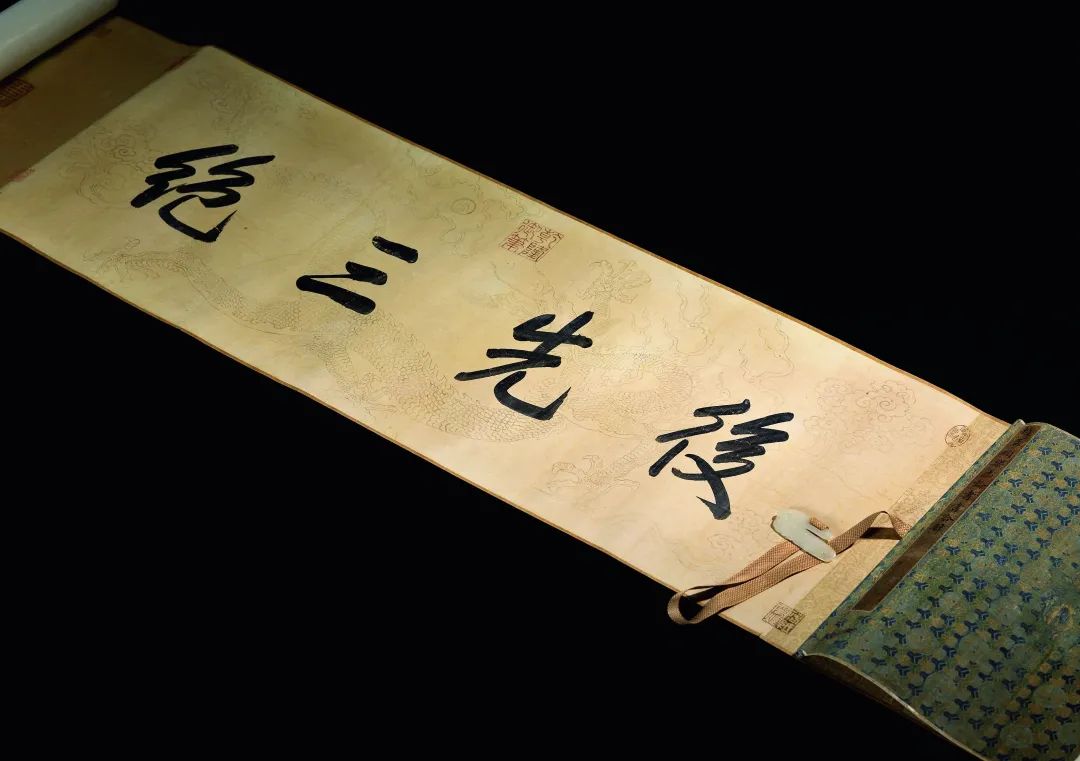 後先三絶
乾隆御筆